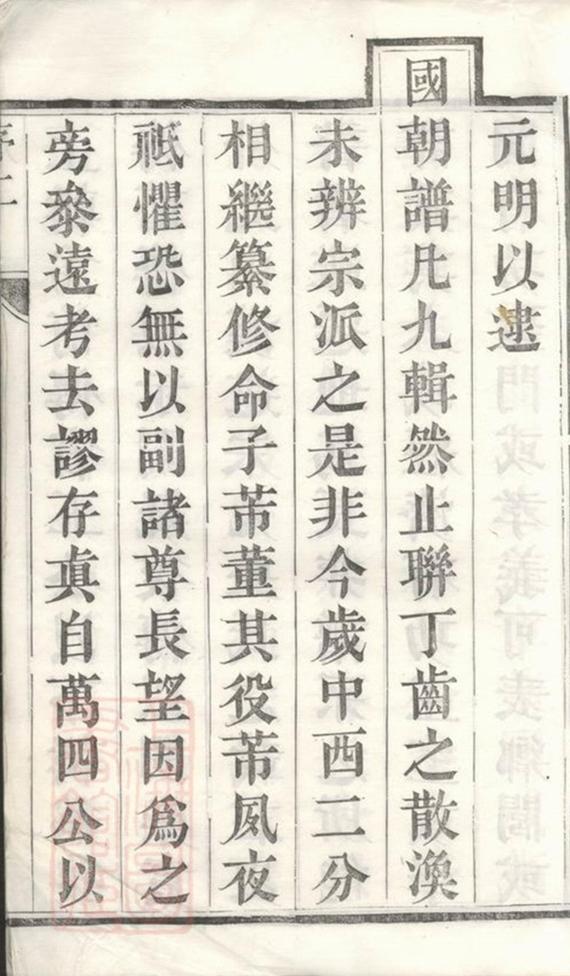 元明以逮
國朝譜凡九輯然止聯丁齒之散渙
未辨宗派之是非今歲中西二分
相繼纂修命子芾董其役芾夙夜
祗懼恐無以副諸尊長望因爲之
旁叅遠考去謬存眞自萬四公以